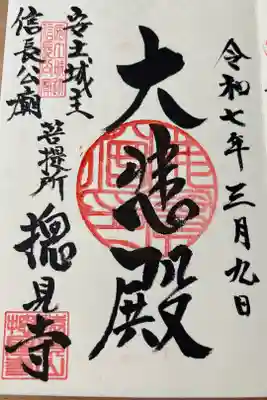 令和七年三月九日
大悲殿
安土城主
信長公廟
菩提所
摠見寺